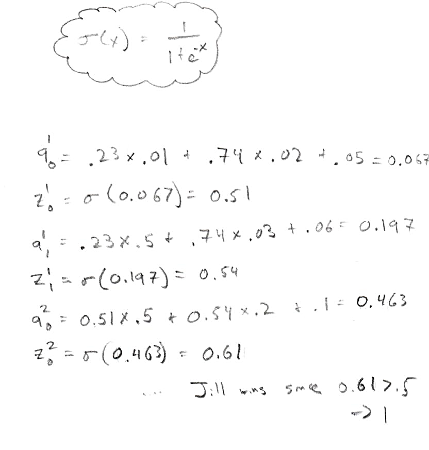 σ(x) = 1 / (1 + e^-x)
a¹₀ = .23 × .01 + .74 × .02 + .05 = 0.067
z¹₀ = σ(0.067) = 0.51
a¹₁ = .23 × .5 + .74 × .03 + .06 = 0.197
z¹₁ = σ(0.197) = 0.54
a²₀ = 0.51 × .5 + 0.54 × .2 + .1 = 0.463
z²₀ = σ(0.463) = 0.61
... Jill wins since 0.61 > .5
→ 1